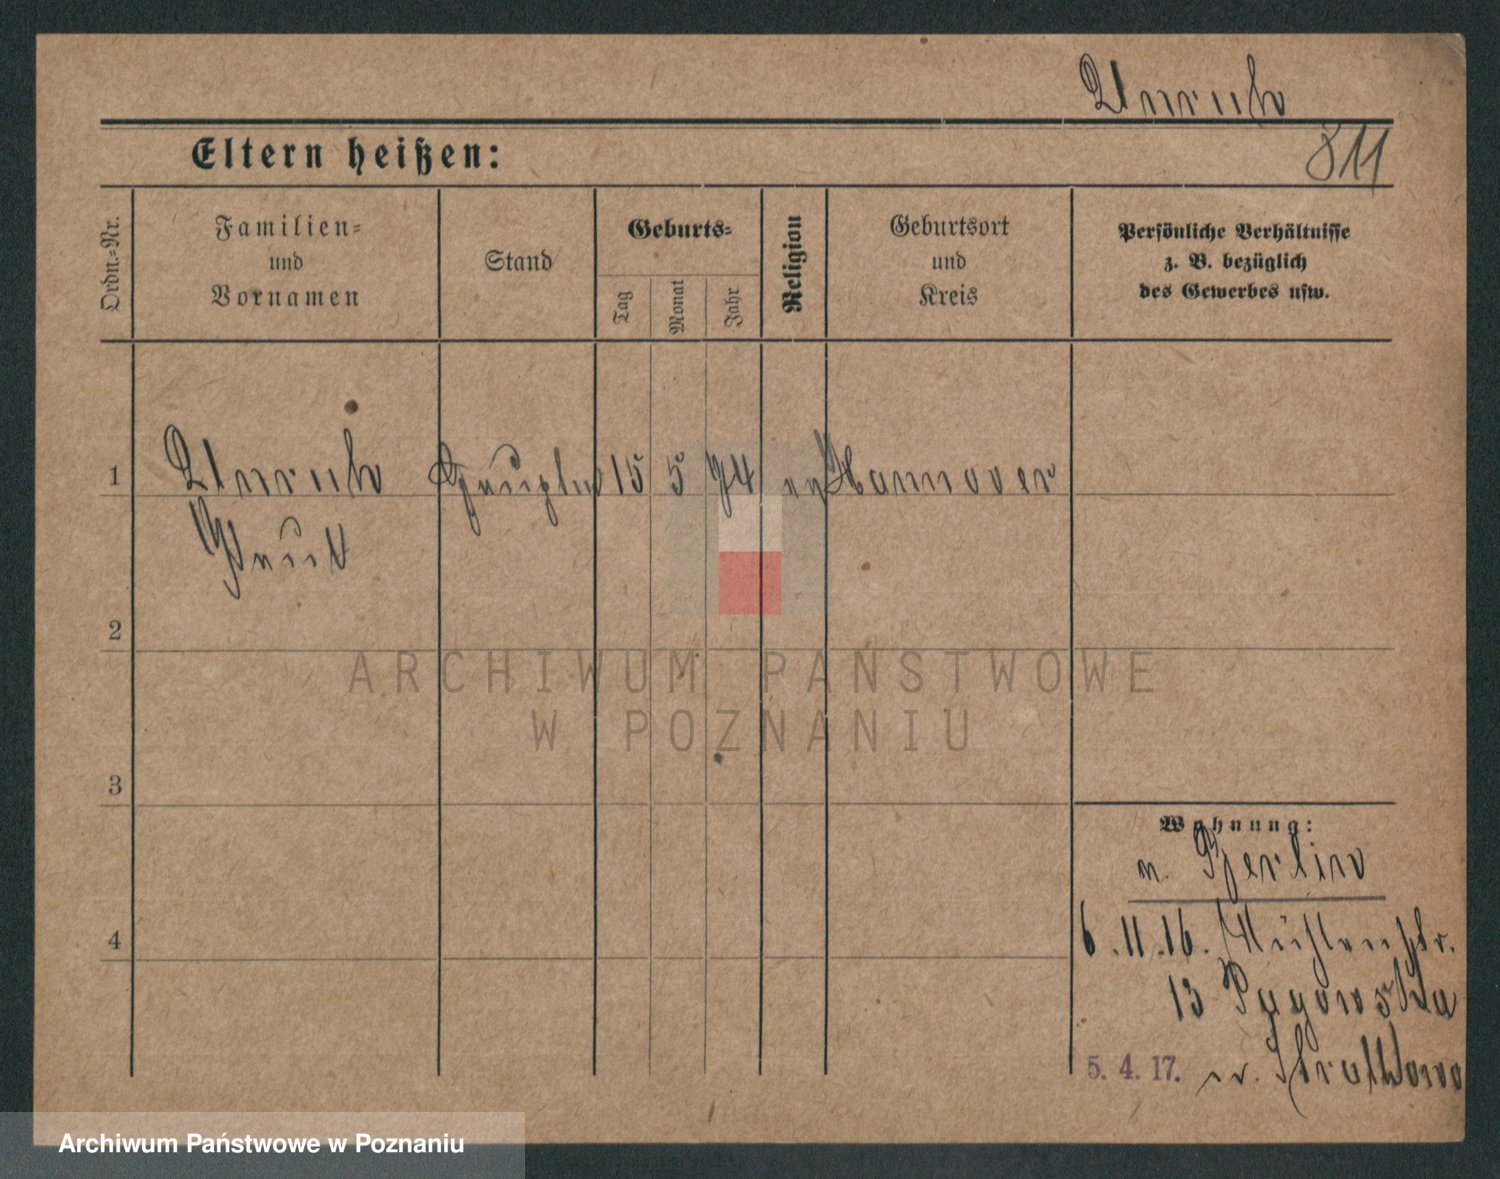 Unruh
811
Eltern heißen:
Ordn.-Nr.
Familien-
und
Vornamen
Stand
Geburts-
Tag
Monat
Jahr
Religion
Geburtsort
und
Kreis
Persönliche Verhältnisse
z. B. bezüglich
des Gewerbes usw.
1
Unruh
15
5
74
ev
Hannover
2
3
4
Wohnung:
n. Berlin
6.11.16. Mühlenstr.
13
5. 4. 17.
ARCHIWUM PAŃSTWOWE
W POZNANIU
Archiwum Państwowe w Poznaniu